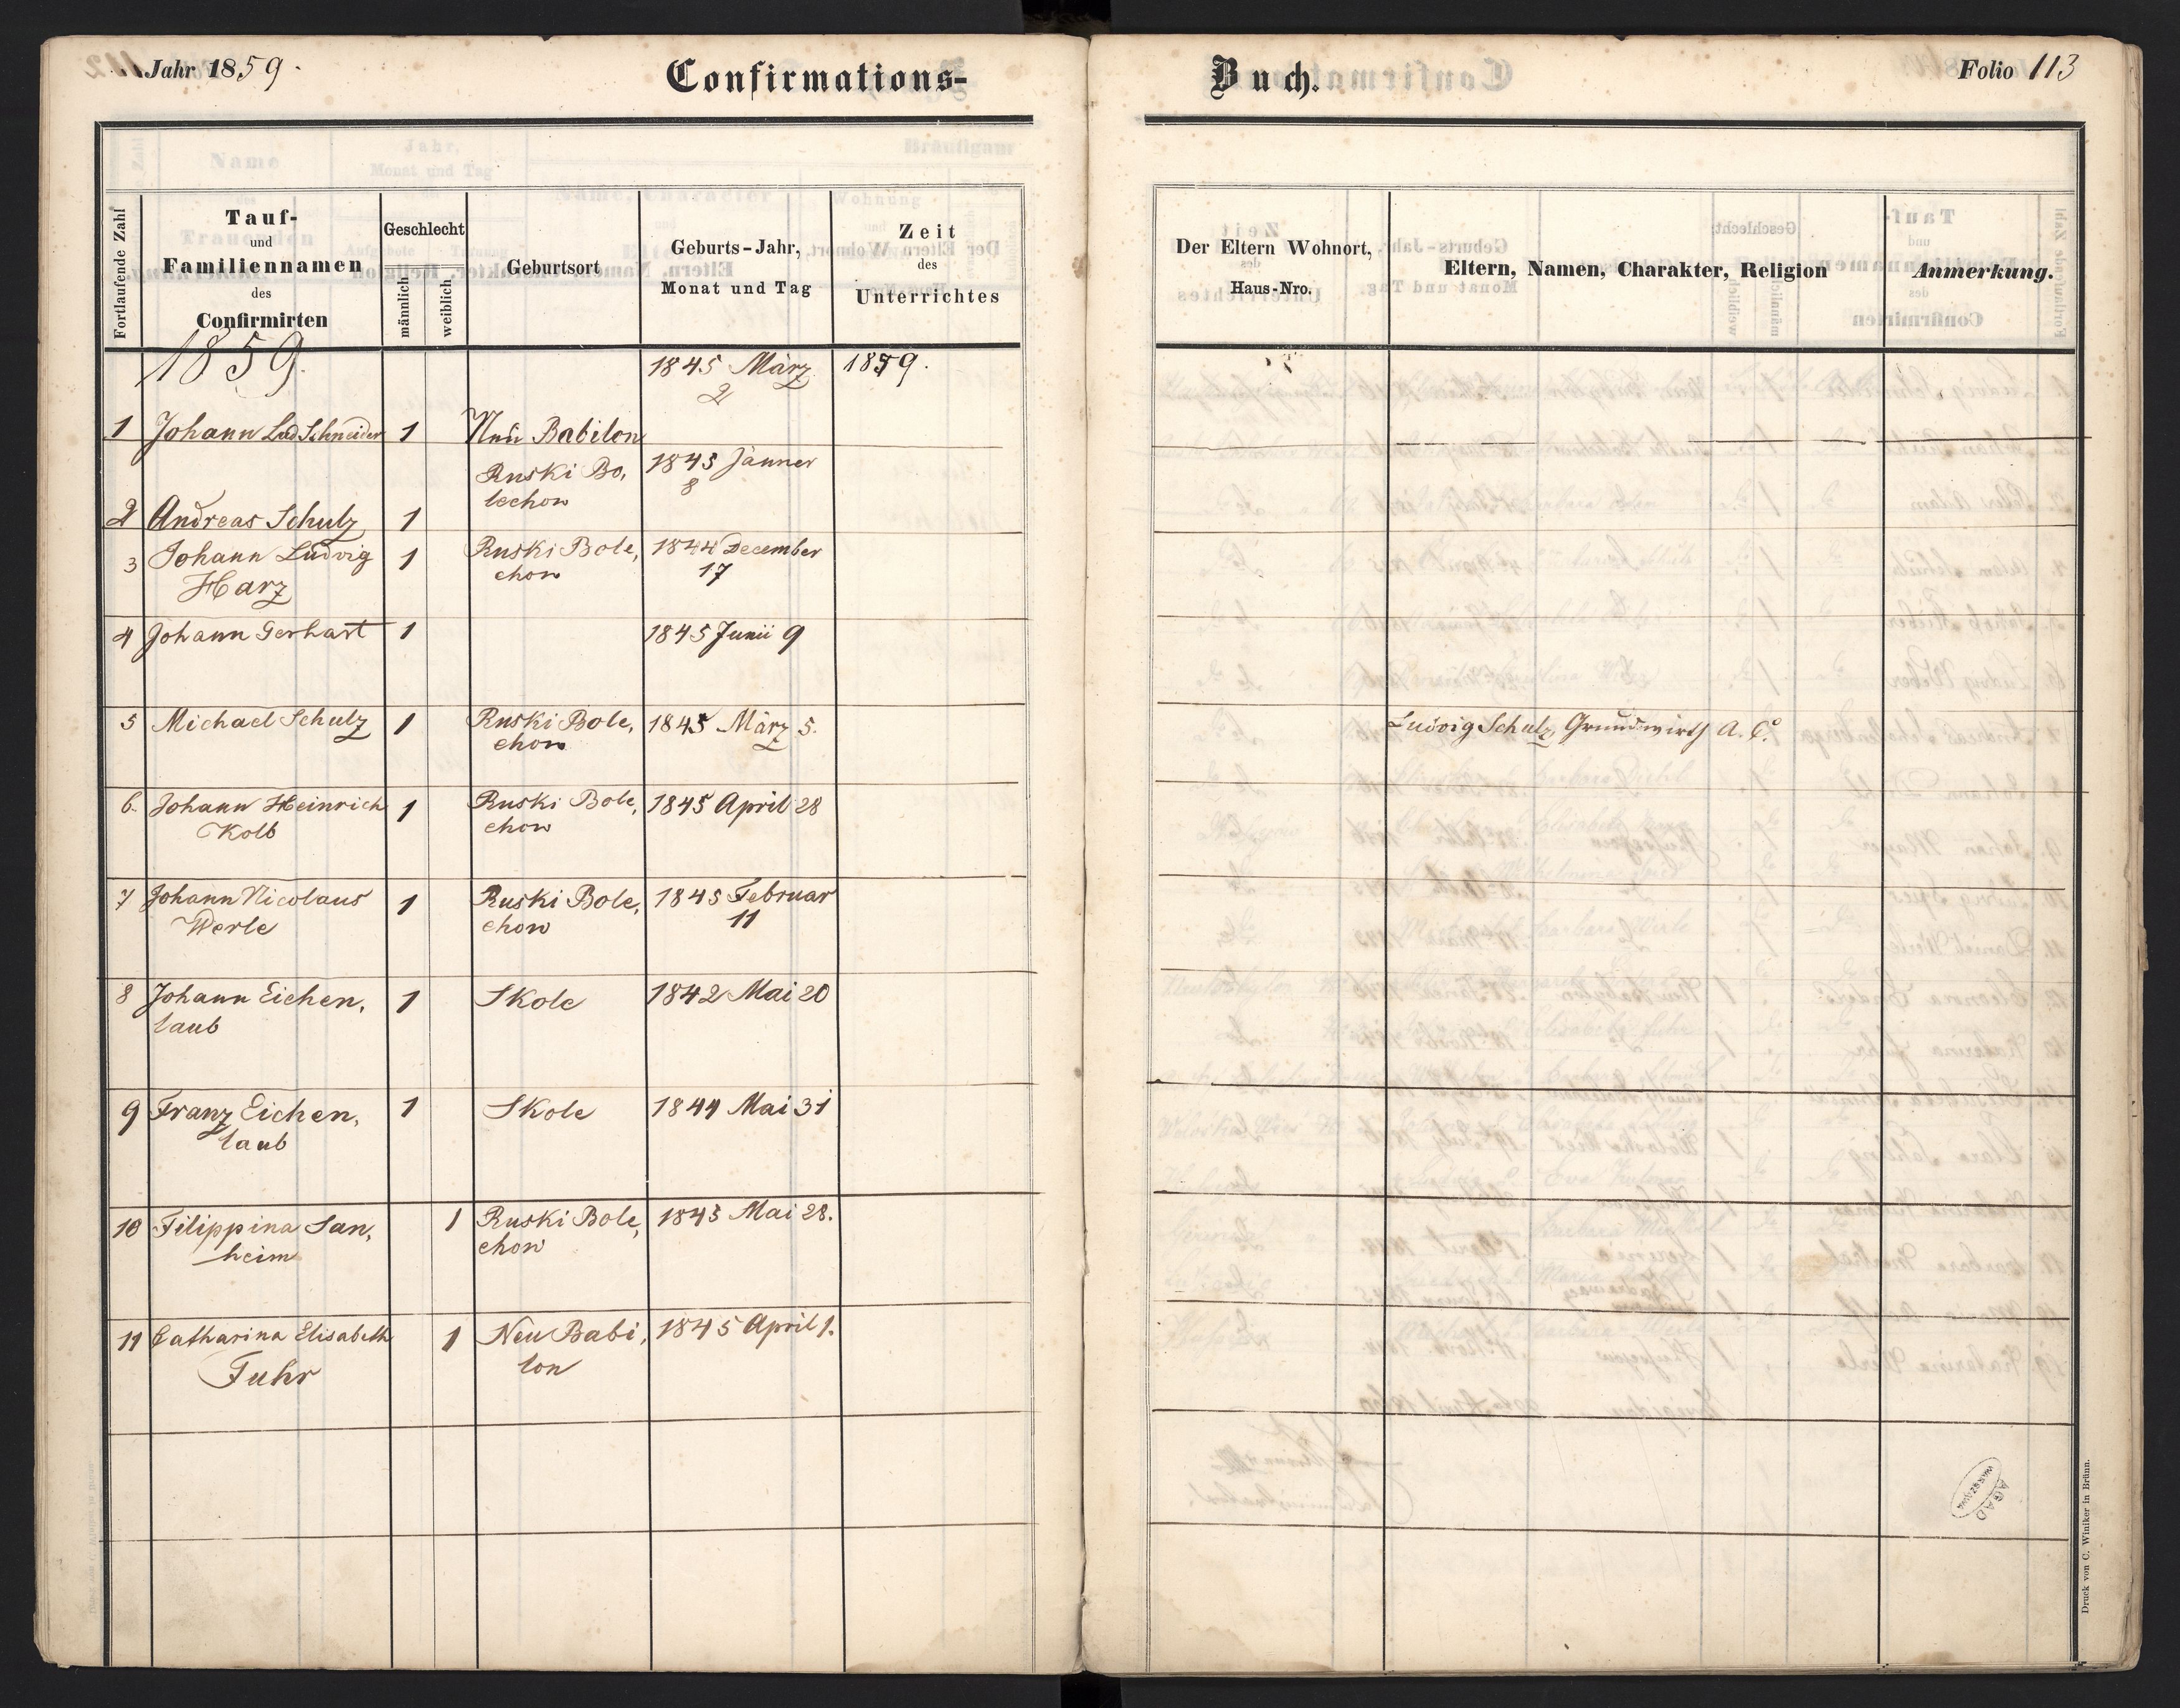 Jahr 1859.
Confirmations-
Buch.
Folio 113
Fortlaufende Zahl
Tauf-
und
Familiennamen
des
Confirmirten
Geschlecht
männlich
weiblich
Geburtsort
Geburts-Jahr,
Monat und Tag
Zeit
des
Unterrichtes
Der Eltern Wohnort,
Haus-Nro.
Eltern, Namen, Charakter, Religion
Anmerkung.
1859.
1845 März 1859.
2
1 Johann Lud Schneider 1 Neu Babilon
Ruski Bo, 1845 Jänner
lechow 8
2 Andreas Schulz 1
3 Johann Ludvig 1 Ruski Bole, 1844 December
Harz chow 17
4 Johann Gerhart 1 1845 Junii 9
5 Michael Schulz 1 Ruski Bole, 1845 März 5. Ludvig Schulz, Grundwirth A. C.
chow
6. Johann Heinrich 1 Ruski Bole, 1845 April 28
Kolb chow
7 Johann Nicolaus 1 Ruski Bole, 1845 Februar
Werle chow 11
8 Johann Eichen, 1 Skole 1842 Mai 20
laub
9 Franz Eichen, 1 Skole 1844 Mai 31
laub
10 Filippina San, 1 Ruski Bole, 1845 Mai 28.
heim chow
11 Catharina Elisabeth 1 Neu Babi, 1845 April 1.
Fuhr lon
AGAD
WARSZAWA
Druck von C. Winiker in Brünn.